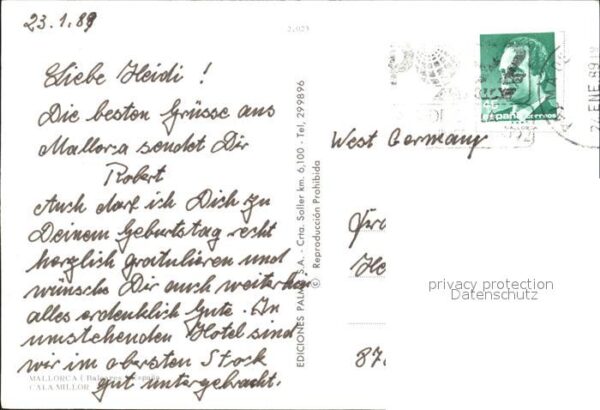 23.1.89
2.023
Liebe Heidi !
Die besten Grüsse aus
Mallorca sendet Dir
Robert
Auch darf ich Dich zu
Deinem Geburtstag recht
herzlich gratulieren und
wünsche Dir auch weiterhin
alles erdenklich Gute. In
umstehenden Hotel sind
wir im obersten Stock
gut untergebracht.
MALLORCA ( Baleares ) España
CALA MILLOR
EDICIONES PALMA, S.A. - Crta. Soller km. 6,100 - Tel. 299896
© Reproducción Prohibida
España correos
MALLORCA
24 ENE 89
West Germany
Fra
He
privacy protection
Datenschutz
87